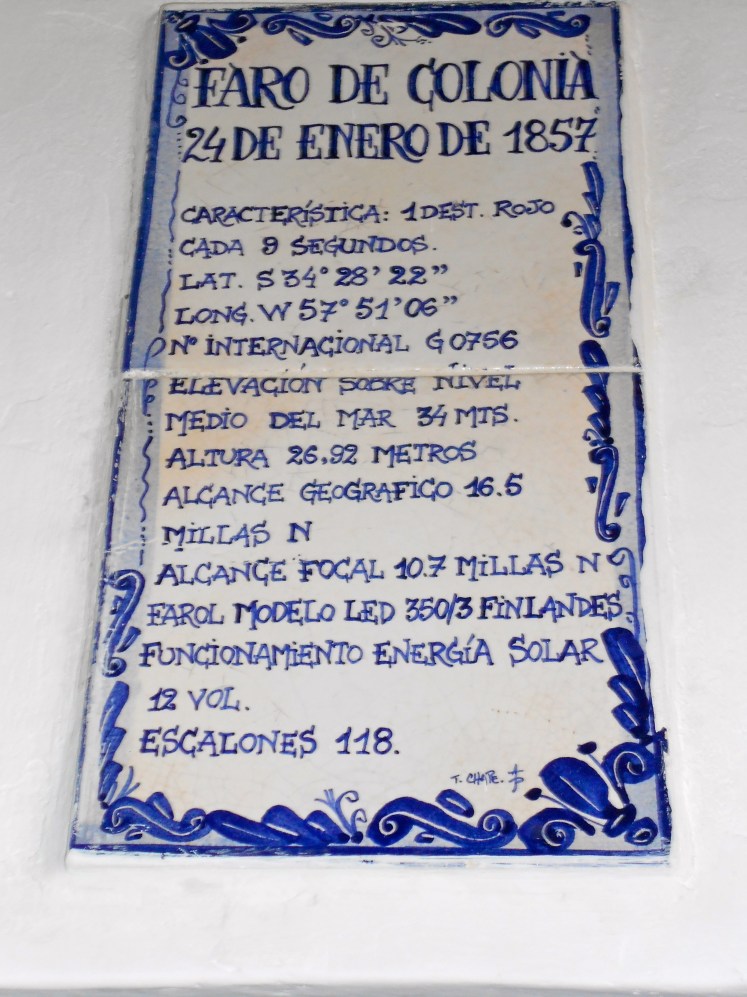 FARO DE COLONIA
24 DE ENERO DE 1857
CARACTERÍSTICA: 1 DEST. ROJO
CADA 9 SEGUNDOS.
LAT. S 34° 28' 22"
LONG. W 57° 51' 06"
N° INTERNACIONAL G 0756
ELEVACIÓN SOBRE NIVEL
MEDIO DEL MAR 34 MTS.
ALTURA 26,92 METROS
ALCANCE GEOGRAFICO 16.5
MILLAS N
ALCANCE FOCAL 10.7 MILLAS N
FAROL MODELO LED 350/3 FINLANDES.
FUNCIONAMIENTO ENERGÍA SOLAR
12 VOL.
ESCALONES 118.